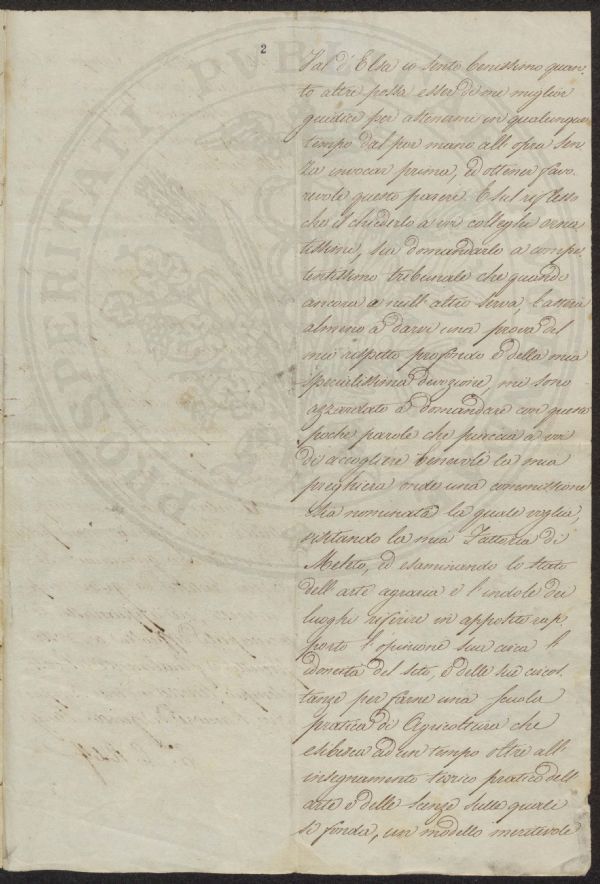 2
Val d'Elsa io sento benissimo quan-
to altri possa esser di me miglior
giudice per astenermi in qualunque
tempo dal por mano all'opra sen
za invocar prima, ed ottener favo-
revole questo parere. E sul riflesso
che il chiederlo a voi colleghi orna
tissimi, sia domandarlo a compe
tentissimo tribunale che quando
ancora a null'altro serva
almeno a darvi una prova del
mio rispetto profondo e della mia
specialissima devozione mi sono
azzardato a domandare con queste
poche parole che piaccia a voi
di accogliere benevoli la mia
preghiera onde una commissione
sia nominata la quale voglia,
visitando la mia Fattoria di
Meleto, ed esaminando lo stato
dell'arte agraria e l'indole dei
luoghi riferire in apposito rap
porto l'opinione sua circa l'
idoneità del sito, e delle sue circos
tanze per farne una scuola
pratica di Agricoltura che
esibisca ad un tempo oltre all'
insegnamento teorico pratico dell'
arte e delle scenze sulle quali
si fonda, un modello meritevole
PROSPERITATI PUBL